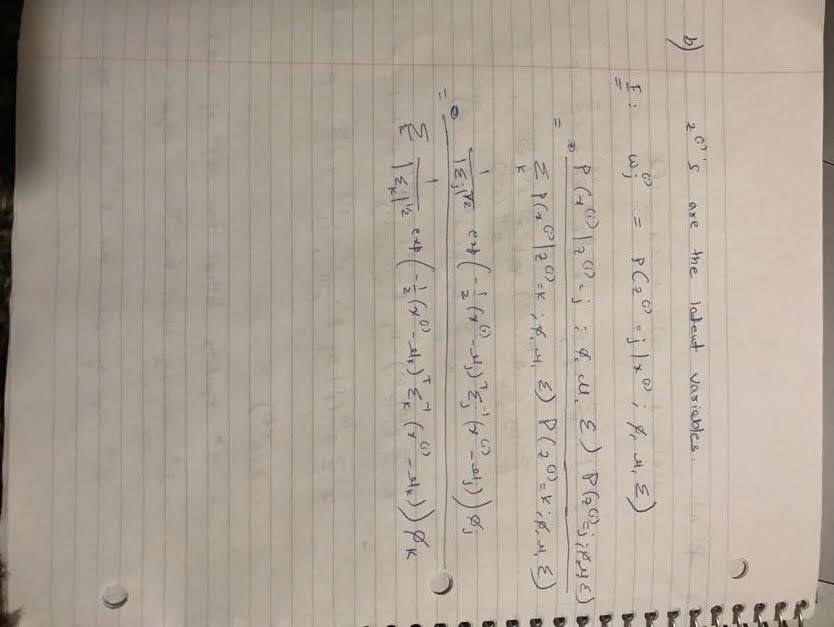 b) z⁽ⁱ⁾'s are the latent variables.
E: wⱼ⁽ⁱ⁾ := P(z⁽ⁱ⁾=j|x⁽ⁱ⁾; φ, μ, Σ)
= P(x⁽ⁱ⁾|z⁽ⁱ⁾=j; φ, μ, Σ) P(z⁽ⁱ⁾=j; φ, μ, Σ)
Σ_k P(x⁽ⁱ⁾|z⁽ⁱ⁾=k; φ, μ, Σ) P(z⁽ⁱ⁾=k; φ, μ, Σ)
= 1/|Σⱼ|^(1/2) exp(-1/2 (x⁽ⁱ⁾-μⱼ)ᵀ Σⱼ⁻¹ (x⁽ⁱ⁾-μⱼ)) φⱼ
Σ_k 1/|Σ_k|^(1/2) exp(-1/2 (x⁽ⁱ⁾-μ_k)ᵀ Σ_k⁻¹ (x⁽ⁱ⁾-μ_k)) φ_k